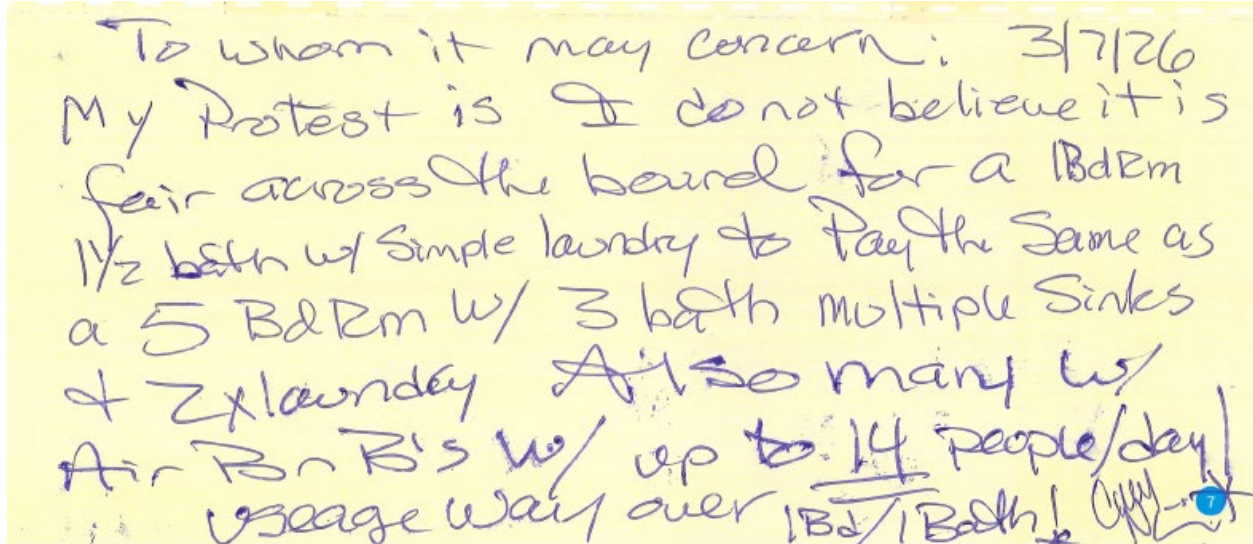 To whom it may concern: 3/7/26
My Protest is I do not believe it is
fair across the board for a 1BdRm
1 1/2 bath w/ Simple laundry to Pay the Same as
a 5 BdRm w/ 3 bath multiple Sinks
+ 2x laundry Also many w/
Air Bn B's w/ up to 14 people/day!
useage way over 1Bd/1Bath!
7